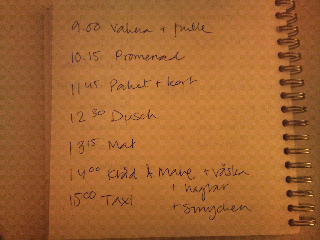 9.00 Vakna + fulle
10.15 Promenad
11.45 Paket + kort
12.30 Dusch
13.15 Mat
14.00 Kläd & Mane + väska
+ naglar
15.00 TAXI + smycken